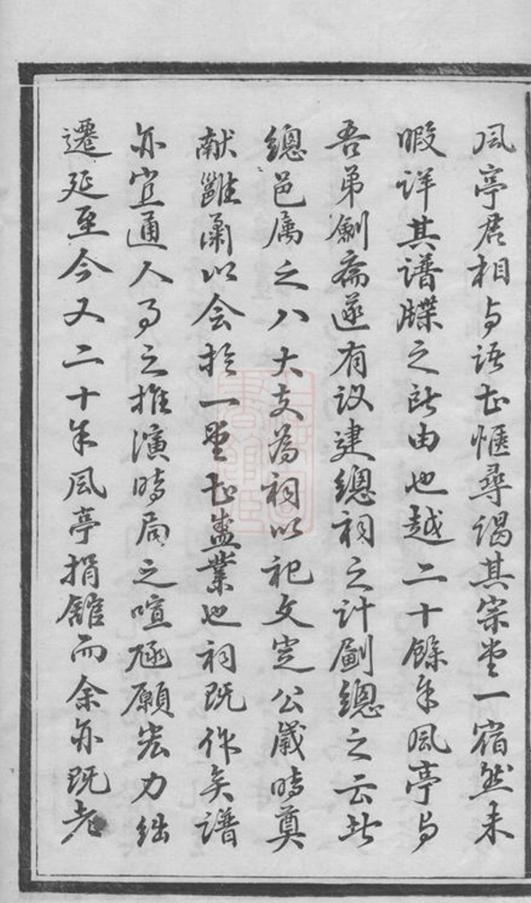 風亭君相与语甚愜尋谒其宗堂一宿然未
暇详其谱牒之所由也越二十餘年風亭与
吾弟劍齋遂有议建總祠之计劃總之云者
總邑属之八大支為祠以祀文定公歲時奠
献雝肅以会於一堂甚盛業也祠既作矣谱
亦宜通人事之推演時局之喧豗願宏力绌
遷延至今又二十年風亭捐館而余亦既老